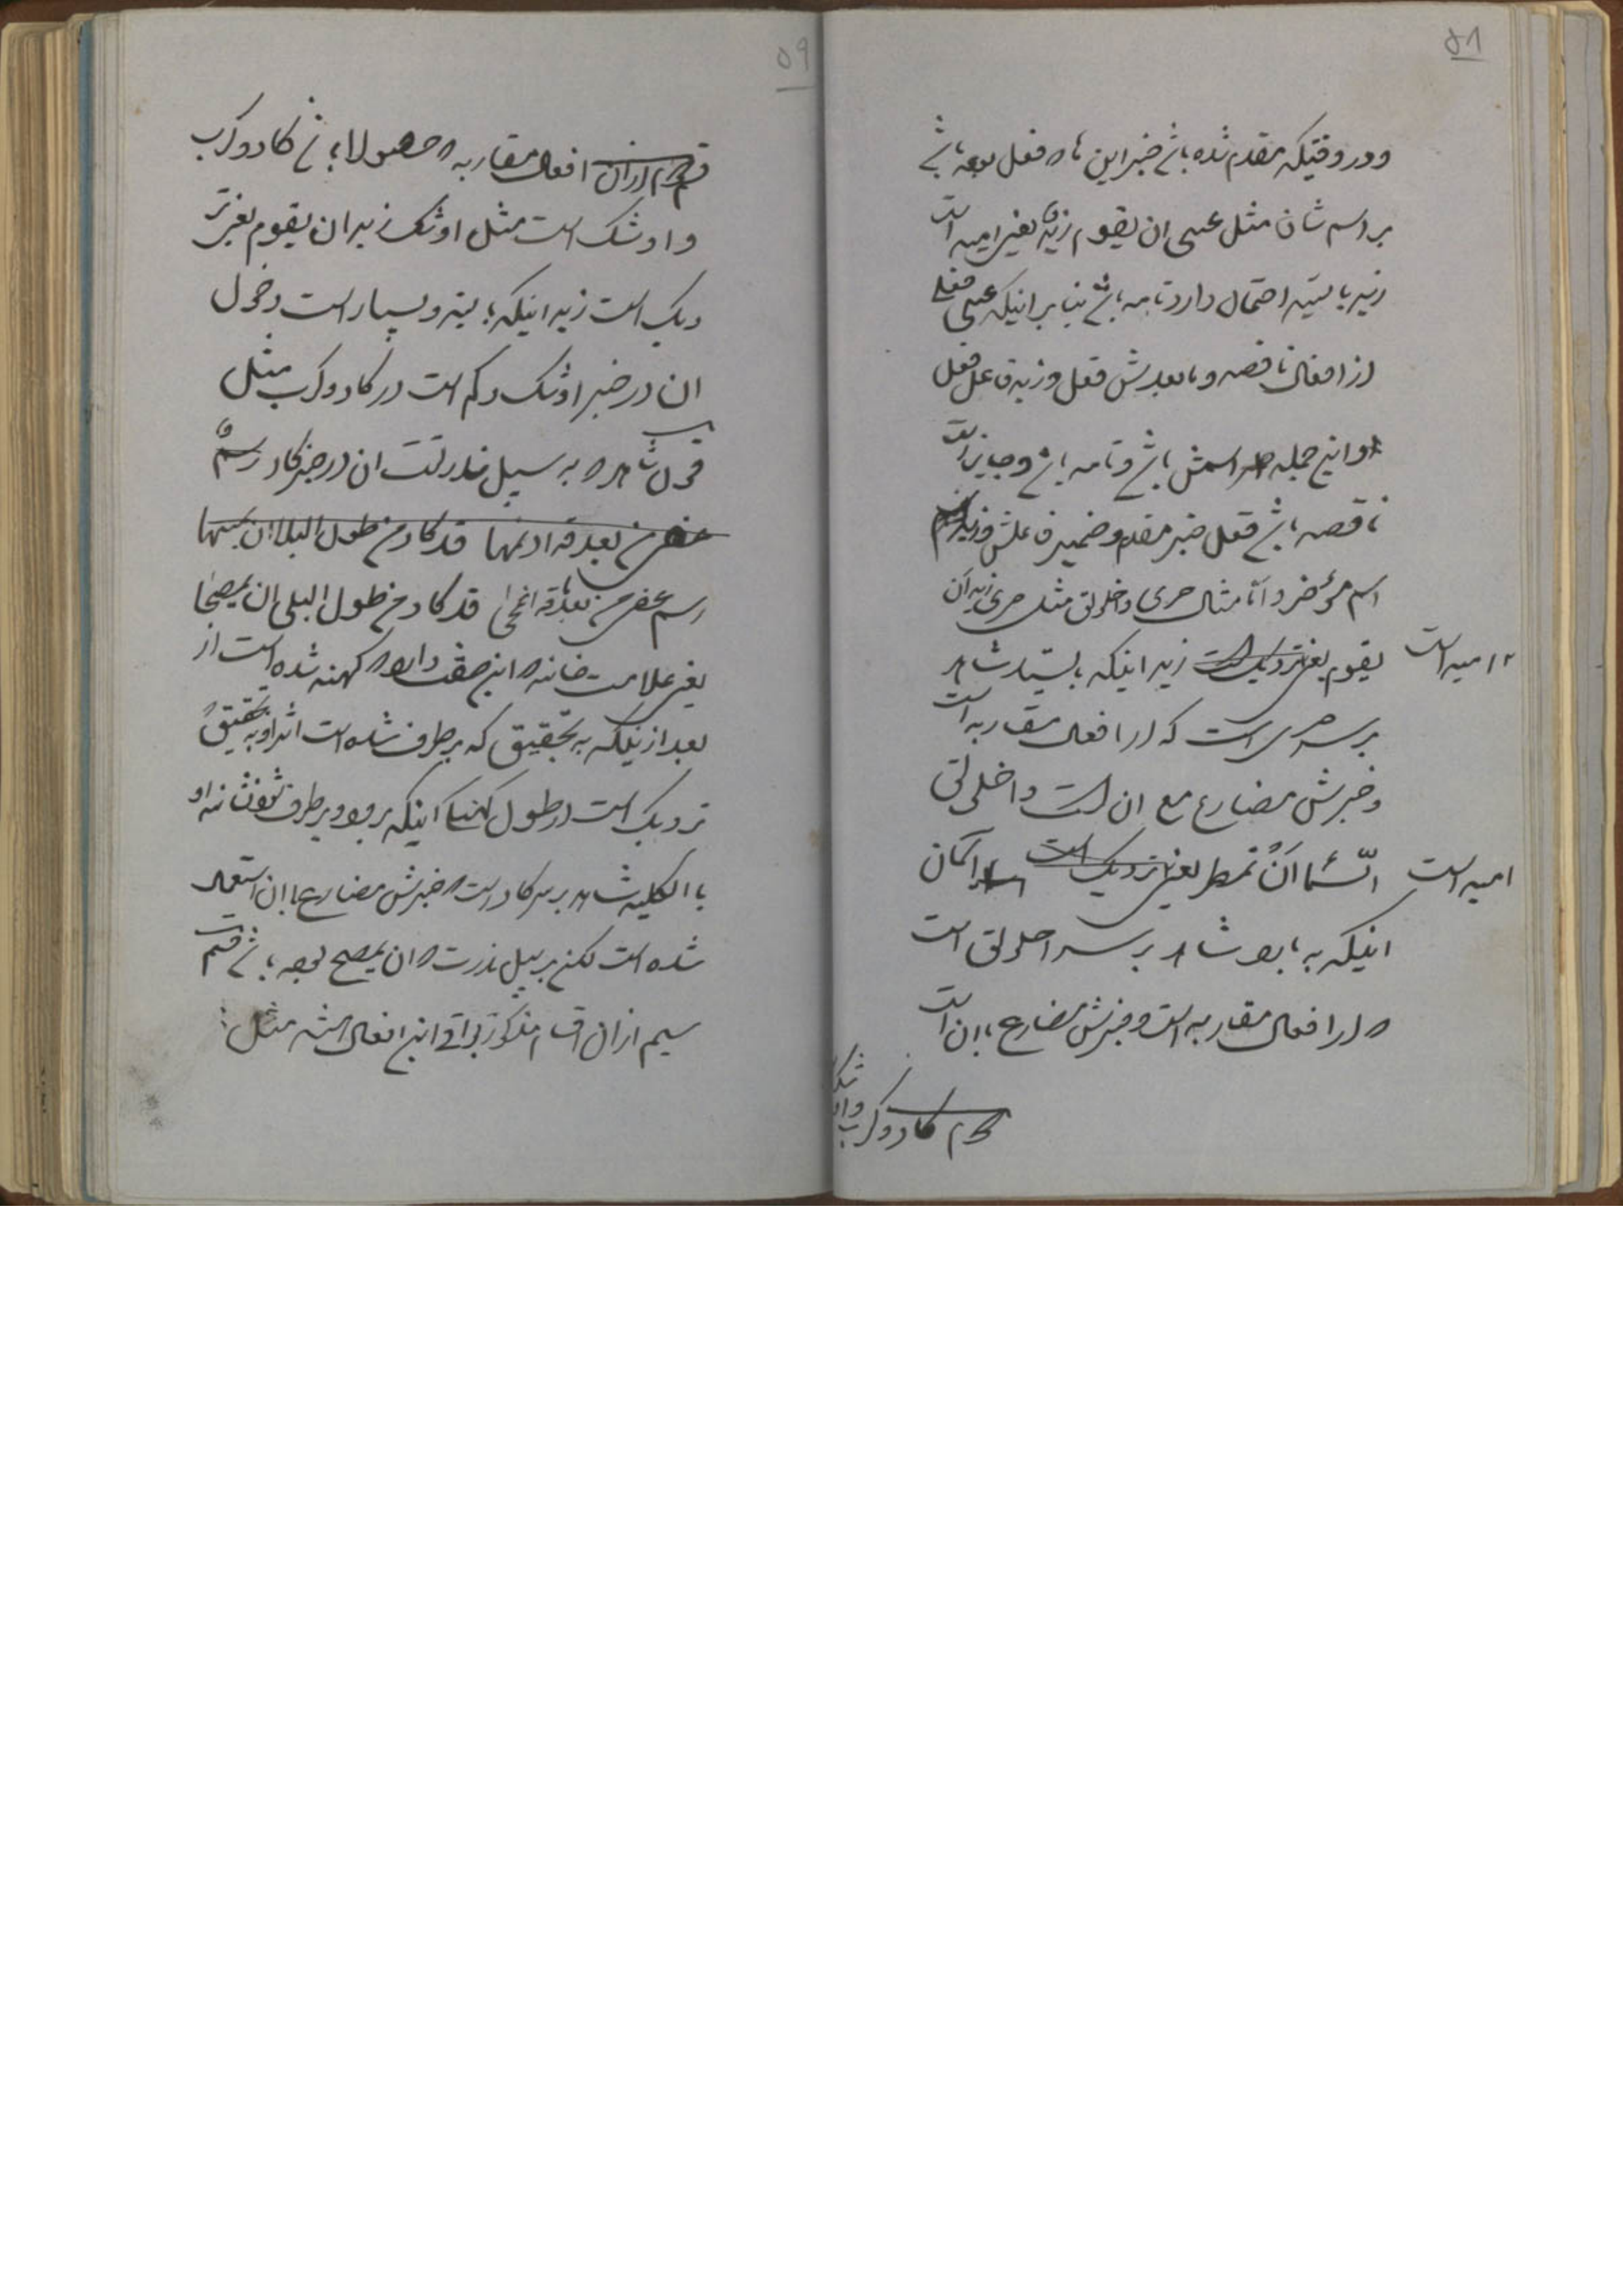 ۵۸
و در وقتیکه مقدم شده باشد خبر این ها که فعل بوده باشد
بر اسم شان مثل عسی ان یقوم زیدٌ یعنی امید است
زید بایستد احتمال دارد تامه باشد بنا بر اینکه عسی فعلی
از افعال ناقصه و مابعدش فعل و زید فاعل فعل
و این جمله اسمش باشد و تامه باشد و جایز است
ناقصه باشد فعل خبر مقدم و ضمیر فاعلش و زید
اسم مؤخر و امّا مثال حری و اخلولق مثل حری زید اَن
یقوم یعنی نزدیک است زید اینکه بایستد شاهد
امید است
بر سر حری است که از افعال مقاربه است
و خبرش مضارع مع ان است و اخلولق
السّماءُ اَنْ تمطر یعنی نزدیک است آسمان
امید است
اینکه ببارد شاهد بر سر اخلولق است
که از افعال مقاربه است و خبرش مضارع با ان است
دوم کاد و کرب
۵۹
قسم دوم از ان افعال مقاربه که حصولا باشد کاد و کرب
و اوشک است مثل اوشک زید ان یقوم یعنی نز
دیک است زید اینکه بایستد و بسیار است دخول
ان در خبر اوشک و کم است در کاد و کرب مثل
قول شاعر که به سبیل ندرتست ان در خبر کاد رسمٌ
قد کاد من طول البلا ان
رسم عفی من بعد ما قد انمحی قد کاد من طول البلی ان یمصحا
یعنی علامت خانه که این صفت دارد که کهنه شده است از
بعد از اینکه به تحقیق که برطرف شده است اثر او به تحقیق
نزدیک است از طول اینکه برود و برطرف شود نشانه او
با الکلیه شاهد بر سر کاد است که خبرش مضارع با ان استعمال
شده است لکن بر سبیل ندرت که ان یمصح بوده باشد قسم
سیم از ان اقسام مذکور برای این افعال انشاء مثل